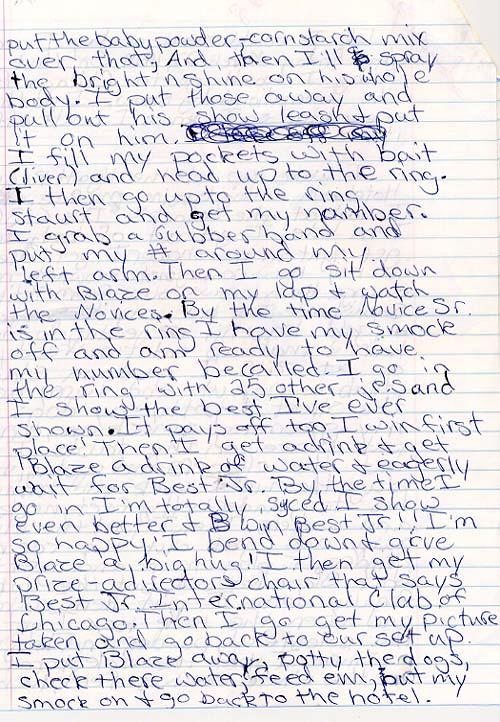 put the baby powder-cornstarch mix
over that, And then I'll spray
the bright 'n shine on his whole
body. I put those away and
pull out his show leash & put
it on him.
I fill my pockets with bait
(liver) and head up to the ring.
I then go up to the ring
staurt and get my number.
I grab a rubber band and
put my # around my
left arm. Then I go sit down
with Blaze on my lap & watch
the Novices. By the time Novice Sr.
is in the ring I have my smock
off and am ready to have
my number be called. I go in
the ring with 25 other jrs and
I show the best I've ever
shown. It pays off too I win first
place! Then I get a drink & get
Blaze a drink of water & eagerly
wait for Best Jr. By the time I
go in I'm totally syced I show
even better & win Best Jr!! I'm
so happy! I bend down & give
Blaze a big hug! I then get my
prize-a directors chair that says
Best Jr. International Club of
Chicago. Then I go get my picture
taken and go back to our set up.
I put Blaze away, potty the dogs,
check there water, feed em, put my
smock on & go back to the hotel.